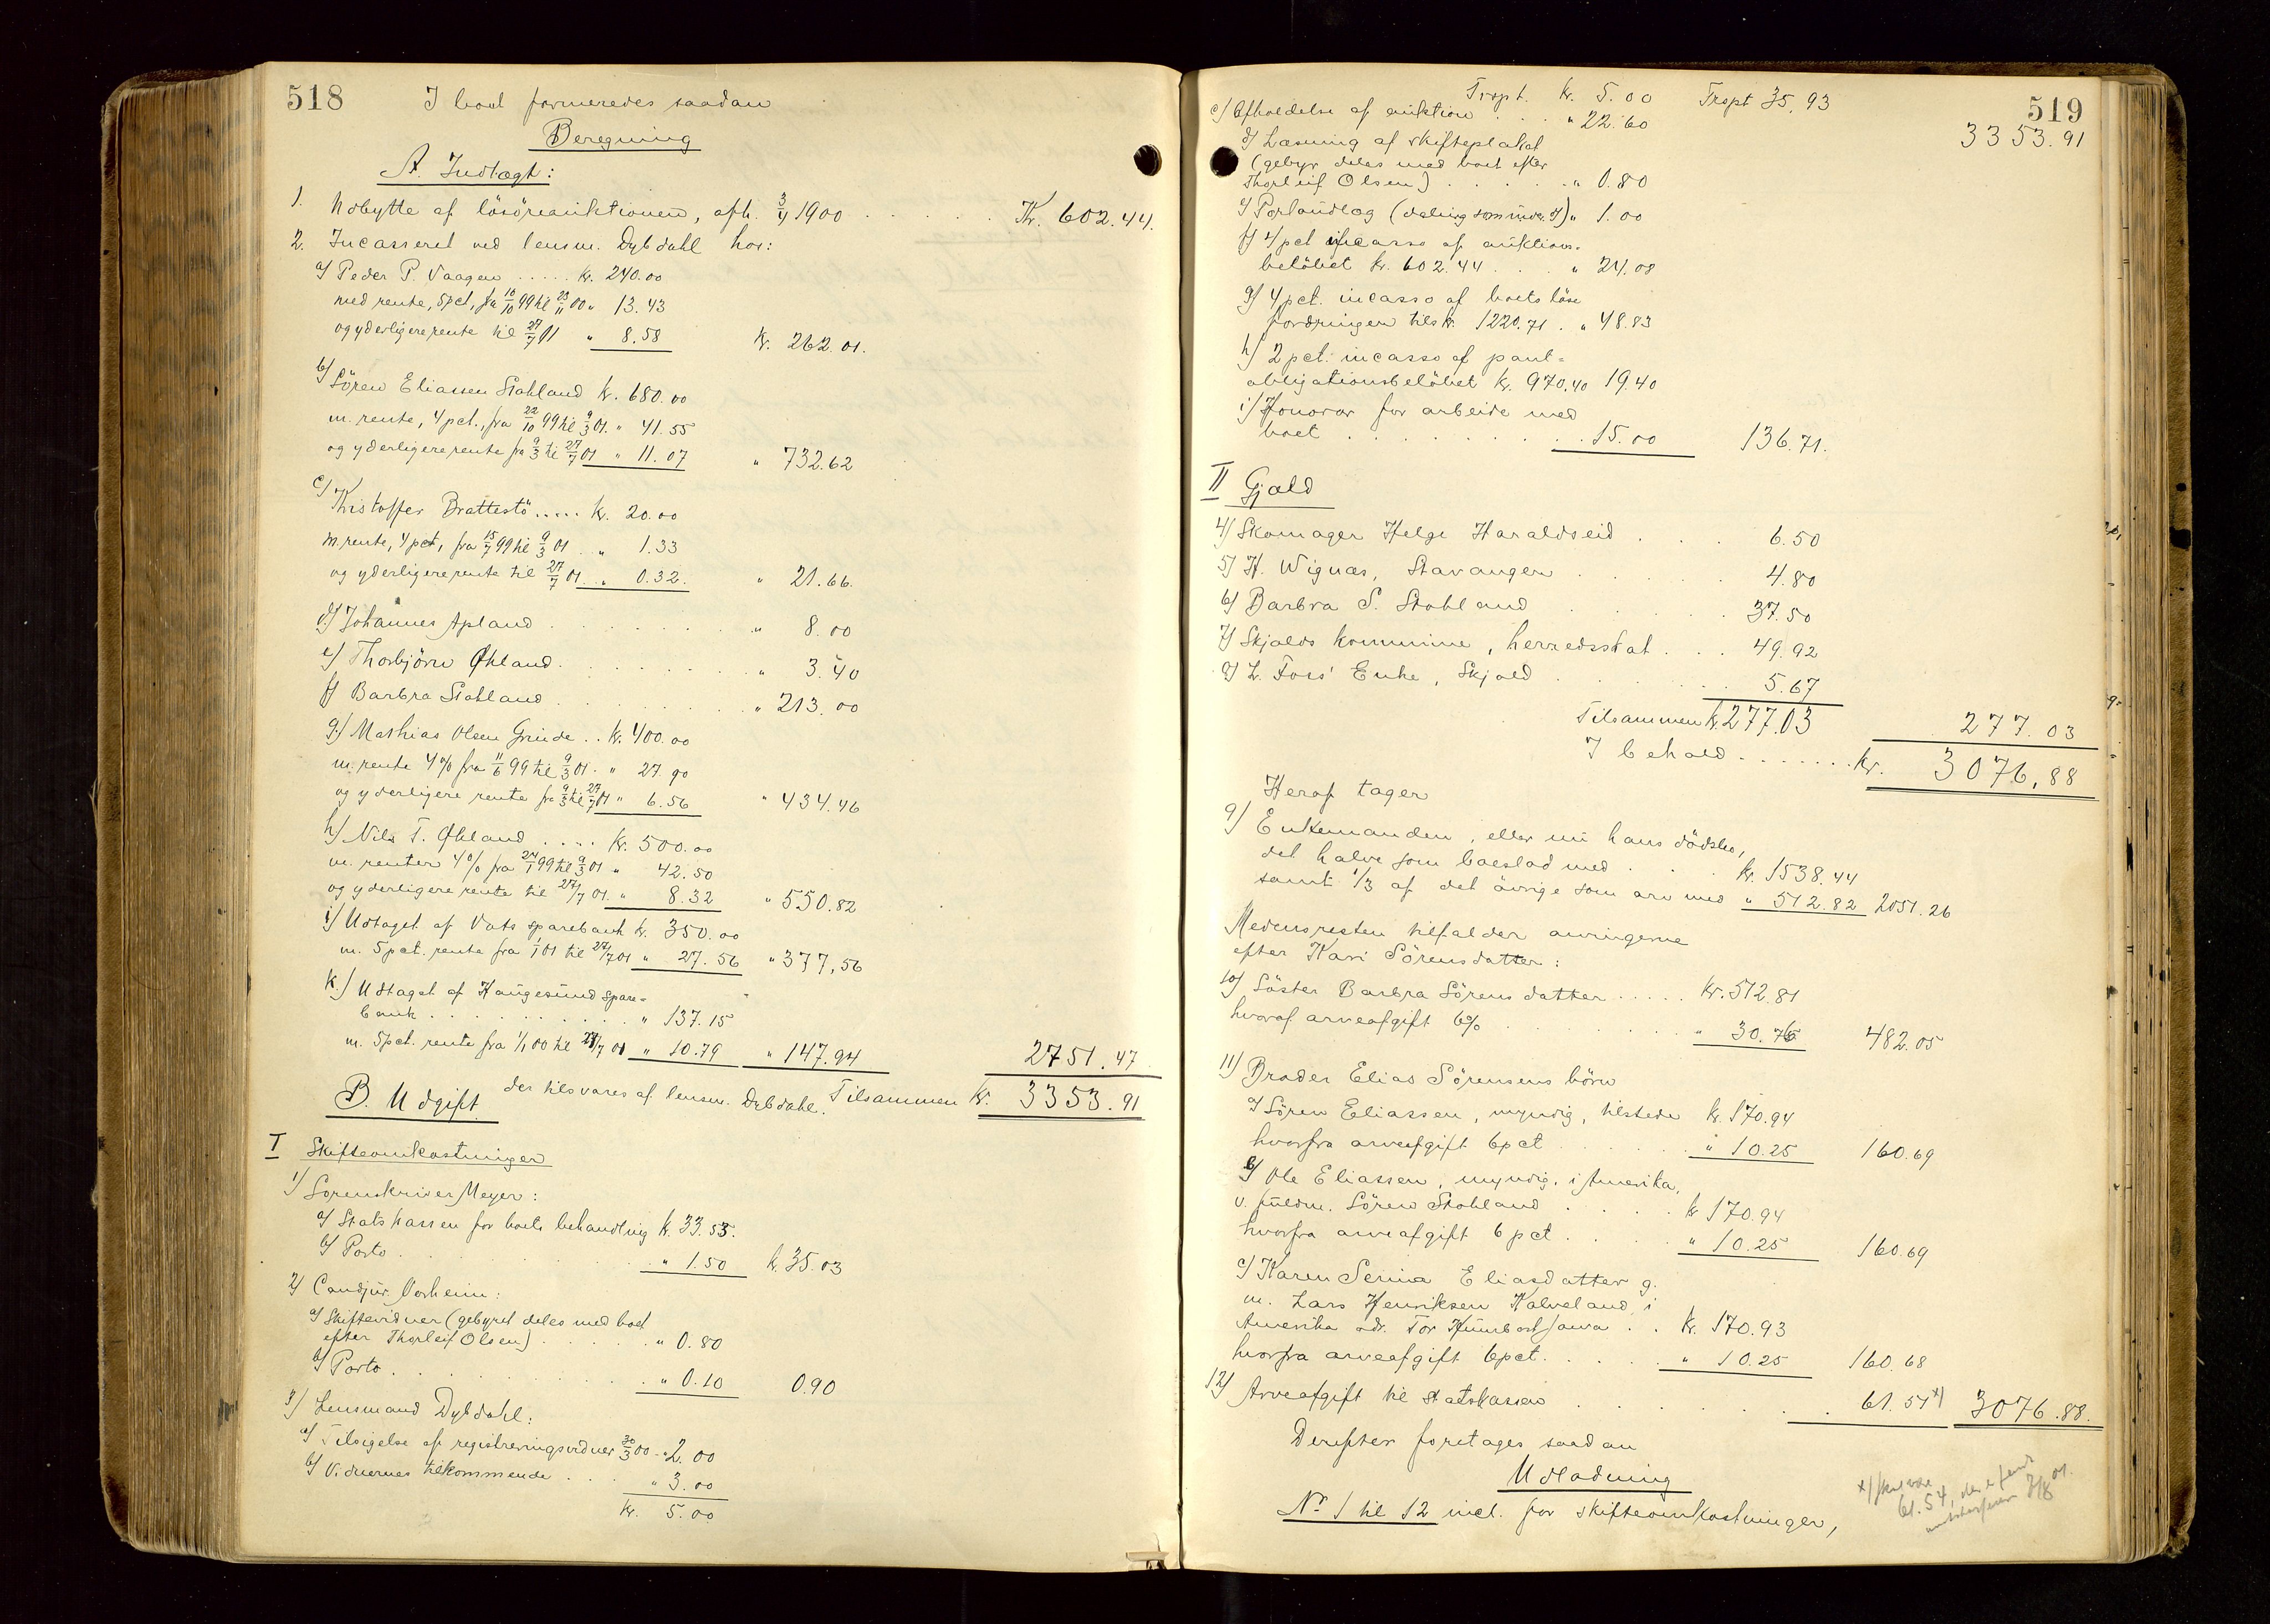 518
I boet formeredes saadan
Beregning
A. Indtægt:
1. Udbytte af lösöreauktionen, afh. 3/4 1900 . . . . . . Kr. 602.44.
2. Incasseret ved lensm. Dybdahl hos:
a) Peder P. Vaagen . . . . . Kr. 240.00
med rente, 5 pct, fra 16/10 99 til 23/11 00 „ 13.43
og yderligere rente til 27/7 01 „ 8.58 Kr. 262.01.
b) Sören Eliassen Stohland Kr. 680.00
m. rente, 4 pct., fra 22/10 99 til 9/3 01. „ 41.55
og yderligere rente fra 9/3 til 27/7 01 „ 11.07 „ 732.62
c) Kristoffer Brattestö . . . . . Kr. 20.00
m. rente, 4 pct, fra 15/7 99 til 9/3 01 . „ 1.33
og yderligere rente til 27/7 01 . . „ 0.32. „ 21.66.
d) Johannes Apland . . . . . . . „ 8.00
e) Thorbjörn Øhland . . . . . . . „ 3.40
f) Barbra Stohland . . . . . . . . „ 213.00
g) Mathias Olsen Grinde . . Kr. 400.00
m. rente 4% fra 11/6 99 til 9/3 01. „ 27.90
og yderligere rente fra 9/3 til 27/7 01 „ 6.56 „ 434.46
h) Nils T. Øhland . . . . Kr. 500.00
m. renter 4% fra 24/1 99 til 9/3 01 „ 42.50
og yderligere rente til 27/7 01. „ 8.32 „ 550.82
i) Udtaget af Vats sparebank Kr. 350.00
m. 5 pct. rente fra 1/1 01 til 27/7 01 „ 27.56 „ 377,56
k.) Udtaget af Haugesund spare=
bank . . . . . . . . . . „ 137.15
m. 5 pct. rente fra 1/1 00 til 27/7 01 „ 10.79 „ 147.94 2751.47
der tilsvares af lensm. Dybdahl. Tilsammen Kr. 3353.91
B. Udgift
I Skifteomkostninger
1) Sorenskriver Meyer:
a) Statskassen for boets behandling k. 33.53.
b) Porto . . . . . . . „ 1.50 k. 35.03
2) Cand jur. Norheim:
a) Skiftevidner (gebyret deles med boet
efter Thorleif Olsen) . . . . . „ 0.80
b) Porto . . . . . . . . . . „ 0.10 0.90
3) Lensmand Dybdahl:
a) Tilsigelse af registreringsvidner 30/3 00 - „ 2.00
b) Vidnernes tilkommende . . . „ 3.00
Kr. 5.00
519
Trspt. Kr. 5.00 Trspt 35,93
3353.91
c) Afholdelse af auktion . . . „ 22.60
d) Læsning af skifteplakat
(gebyr deles med boet efter
Thorleif Olsen) . . . . . „ 0.80
e) Forlandtog (deling som under d) „ 1.00
f) 4 pct incasso af auktions-
belöbet k. 602.44 . . . „ 24.08
g) 4 pct. incasso af boets löse
fordringer tils k. 1220.71 . „ 48.83
h) 2 pct. incasso af pant=
obligationsbelöbet Kr. 970.40 19.40
i) Honorar for arbeide med
boet . . . . . . . . . . . . 15.00 136.71.
II Gjæld
4) Skomager Helge Haraldseid . . . 6.50
5) H. Wignæs, Stavanger . . . . . 4.80
6) Barbra S. Stohland . . . . . 37.50
7) Skjolds kommune, herredsskat . . . 49.92
8) L. Foss' Enke, Skjold . . . . . 5.67
Tilsammen Kr. 277.03 277.03
I behold . . . . . . . Kr. 3076,88
Heraf tager
9) Enkemanden, eller nu hans dödsbo,
det halve som boeslod med . . . Kr. 1538.44
samt 1/3 af det övrige som arv med „ 512.82 2051.26
Medens resten tilfalder arvingerne
efter Kari Sörensdatter:
10) Söster Barbra Sörensdatter . . . . . Kr. 512.81
hvoraf arveafgift 6% . . . . . . . . „ 30.76 482.05
11) Broder Elias Sörensens börn
a) Sören Eliassen, myndig, tilstede Kr. 170.94
hvorfra arveafgift 6 pct . . . . . . „ 10.25 160.69
b) Ole Eliassen, myndig, i Amerika,
v. fuldm. Sören Stohland . . . . . kr 170.94
hvorfra arveafgift 6 pct . . . . . „ 10.25 160.69
c) Karen Serina Eliasdatter g.
m. Lars Henriksen Kalveland, i
Amerika adr. Tor Humbost Jowa . . Kr. 170.93
hvorfra arveafgift 6 pct. . . . . „ 10.25 160.68
12) Arveafgift til statskassen . . . . . . . . 61.51 x) 3076.88.
Derefter foretages saadan
Udlodning
No 1 til 12 incl. for skifteomkostninger,
x) skal være
61.54, 7/8 01.